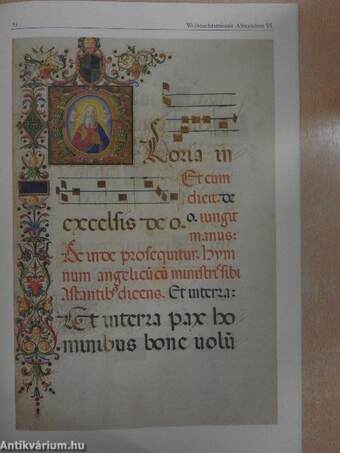 53 Weihnachtsmissale Alexanders VI.
Gloria in
Et cum
dicit: de
excelsis de o. o. iungit
manus:
De inde prosequitur. hym
num angelicũ cũ ministris sibi
astantibꝫ dicens. Et in terra:
Et in terra pax ho
minibus bone uolũ
Antikvárium.hu
Antikvárium.hu